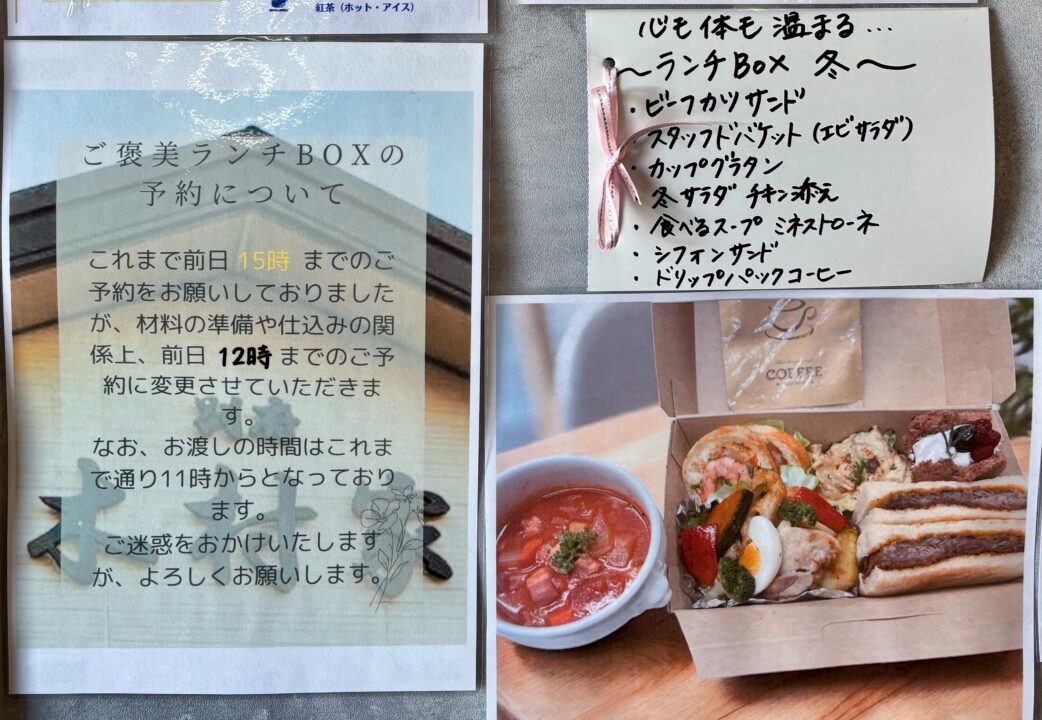 紅茶（ホット・アイス）
ご褒美ランチBOXの
予約について
これまで前日 15時 までのご
予約をお願いしておりました
が、材料の準備や仕込みの関
係上、前日 12時 までのご予
約に変更させていただきま
す。
なお、お渡しの時間はこれま
で通り11時からとなっており
ます。
ご迷惑をおかけいたします
が、よろしくお願いします。
木村家
心も体も温まる...
〜ランチBox 冬〜
・ビーフカツサンド
・スタッフドバケット(エビサラダ)
・カップグラタン
冬サラダ チキン添え
・食べるスープ ミネストローネ
・シフォンサンド
・ドリップパックコーヒー
COFFEE